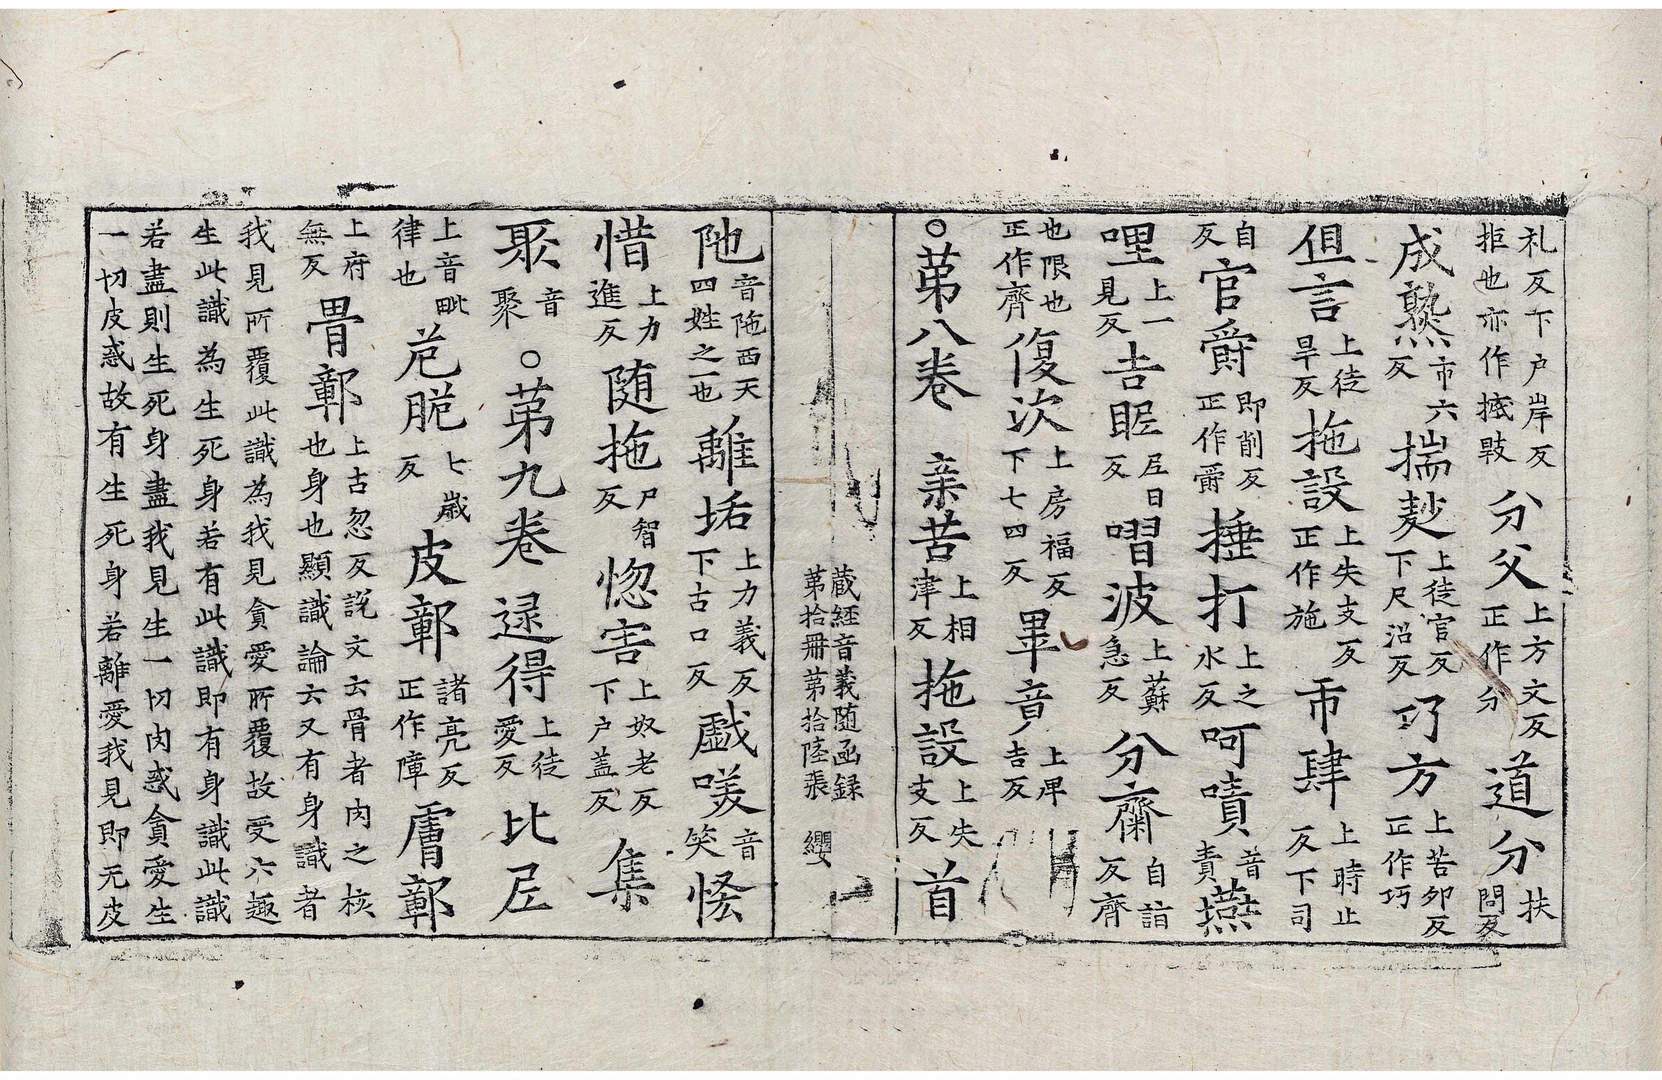 礼反下户岸反拒也亦作捍㪋分父上方文反正作分道分扶問反
成熟市六反揣麨上徒官反下尺沼反巧方上苦夘反正作巧
但言上徒旱反拖設上失支反正作施市肆上時止反下司
自反官爵即削反正作爵捶打上之水反呵嘖音責䕾
哩上一見反吉眤尼日反喟波上蘇急反分齊自詣反齊
也限也正作齊復次上房福反下七四反畢竟上卑吉反
○苐八卷 亲苦上相津反拖設上失支反首
藏經音義随函録苐拾冊苐拾陸張 纓
陁音陁西天四姓之一也離垢上力義反下古口反戯㗛音笑恡
惜上力進反随拖尸智反惚害上奴老反下户盖反集
聚音聚○苐九卷 逯得上徒愛反比𡰱
上音毗律也危脆七歳反皮鄣諸亮反正作障膚鄣
上府無反骨鄣上古忽反説文云骨者肉之核也身也顯識論云又有身識者
我見所覆此識為我見貪愛所覆故受六趣
生此識為生死身若有此識即有身識此識
若盡則生死身盡我見生一切肉惑貪愛生
一切皮惑故有生死身若離愛我見即无皮